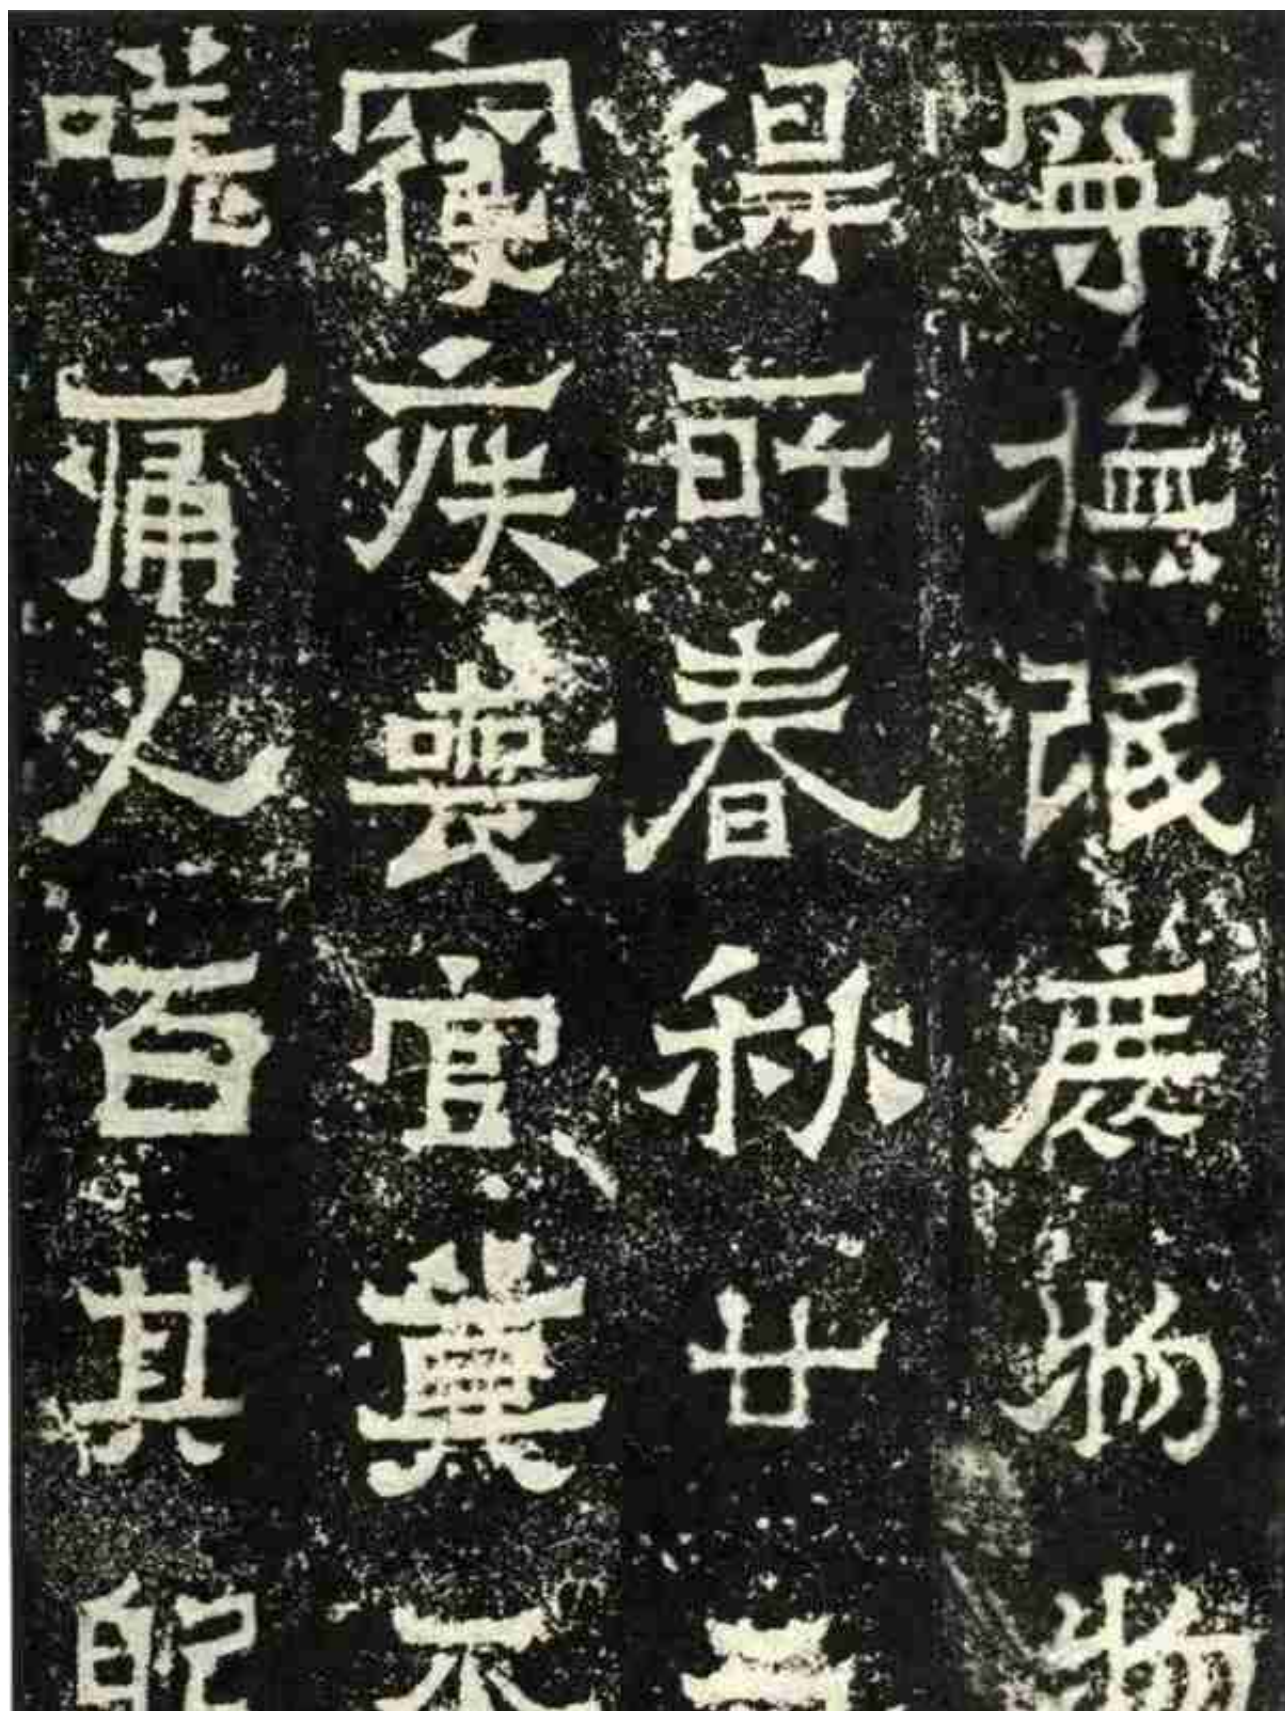 寧撫氓庶物物
得所春秋廿三
寢疾喪官莫不
嗟痛人百其躬